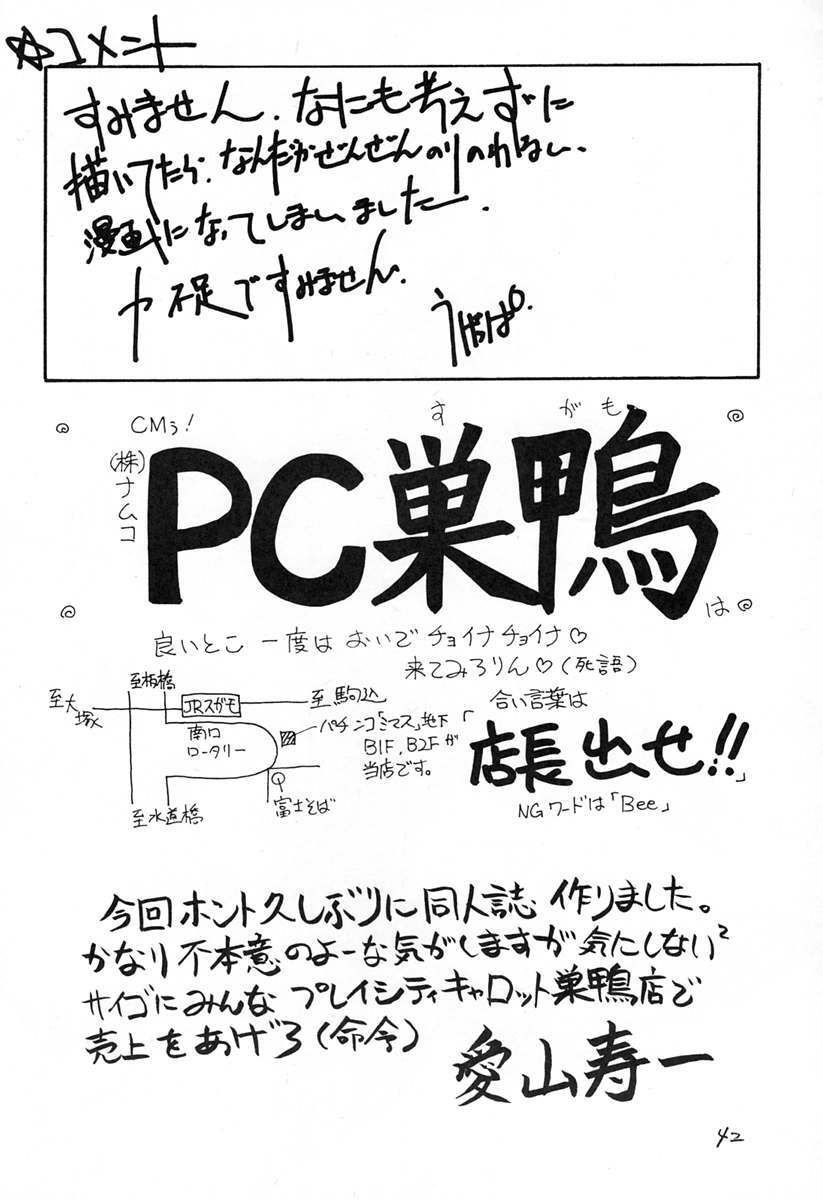 ☆コメント
すみません.なにも考えずに
描いてたら.なんだかぜんぜんのりのわるい.
漫画になってしまいました.
力不足ですみません.
CMう!
(株)ナムコ
すがも
PC巣鴨
は
良いとこ 一度は おいで チョイナチョイナ♡
来てみろりん♡(死語)
至板橋
至大塚
JRスがも
至 駒込
南口
ロータリー
パチンコ「ミマス」地下
B1F,B2Fが
当店です。
至水道橋
富士そば
合い言葉は
「店長出せ!!」
NGワードは「Bee」
今回ホント久しぶりに同人誌 作りました。
かなり不本意のよーな気がしますが気にしない²
サイゴにみんな プレイシティキャロット巣鴨店で
売上をあげろ(命令)
愛山寿一
42